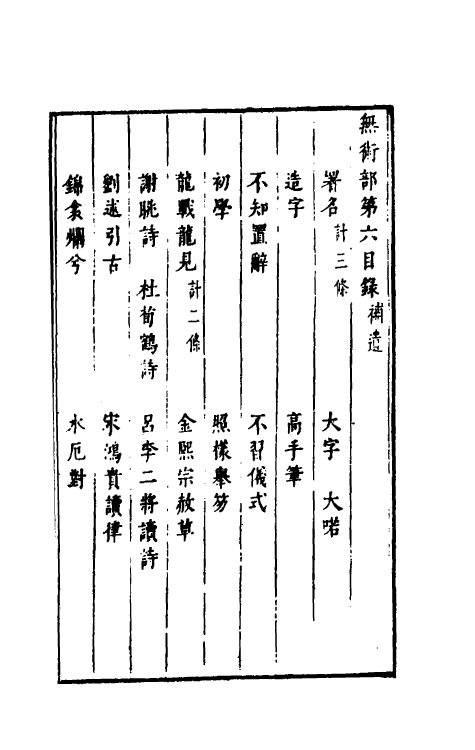 無術部第六目錄補遺
署名計三條　大字　大喏
造字　高手筆
不知置辭　不習儀式
初學　照樣舉笏
龍戰龍見計二條　金熙宗赦草
謝朓詩　杜荀鶴詩　呂李二將讀詩
劉述引古　宋鴻貴讀律
錦衾爛兮　水厄對